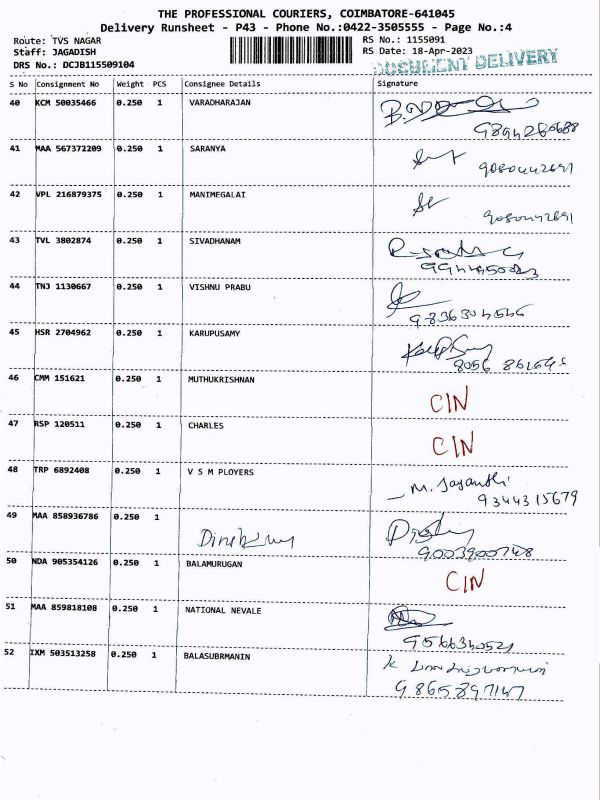 THE PROFESSIONAL COURIERS, COIMBATORE-641045
Delivery Runsheet - P43 - Phone No.:0422-3505555 - Page No.:4
Route: TVS NAGAR RS No.: 1155091
Staff: JAGADISH RS Date: 18-Apr-2023
DRS No.: DCJB115509104 DOCUMENT DELIVERY
S No Consignment No Weight PCS Consignee Details Signature
40 KCM 50035466 0.250 1 VARADHARAJAN
41 MAA 567372209 0.250 1 SARANYA
9080442691
42 VPL 216879375 0.250 1 MANIMEGALAI
9080442691
43 TVL 3802874 0.250 1 SIVADHANAM
44 TNJ 1130667 0.250 1 VISHNU PRABU
45 HSR 2704962 0.250 1 KARUPUSAMY
46 CMM 151621 0.250 1 MUTHUKRISHNAN
CIN
47 RSP 120511 0.250 1 CHARLES
CIN
48 TRP 6892408 0.250 1 V S M PLOYERS
M. Jayanthi
9344315679
49 MAA 858936786 0.250 1
9003900748
50 NDA 905354126 0.250 1 BALAMURUGAN
CIN
51 MAA 859818108 0.250 1 NATIONAL NEVALE
9566340521
52 IXM 503513258 0.250 1 BALASUBRMANIN
9865897147